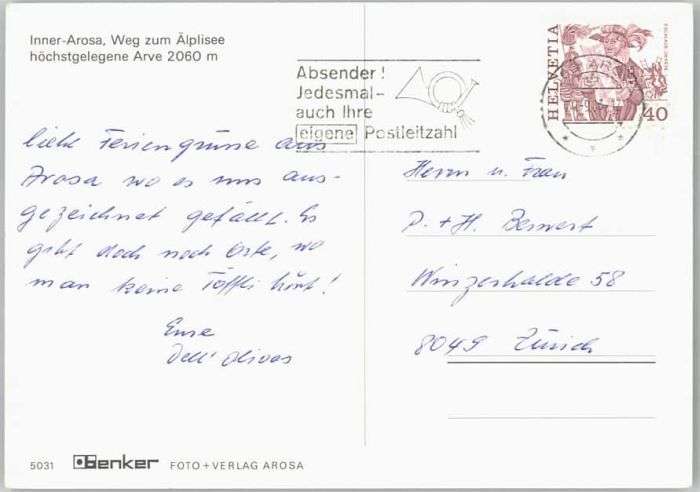 Inner-Arosa, Weg zum Älplisee
höchstgelegene Arve 2060 m
Absender!
Jedesmal-
auch Ihre
eigene Postleitzahl
HELVETIA
40
liebe Feriengrüsse aus
Arosa wo es uns aus-
gezeichnet gefällt. Es
gibt doch noch Orte, wo
man keine Töffli hört!
Eure
Dell' Olivos
Herrn u. Frau
P. + H. Bewert
Winzerhalde 58
8049 Zürich
5031 Benker FOTO + VERLAG AROSA